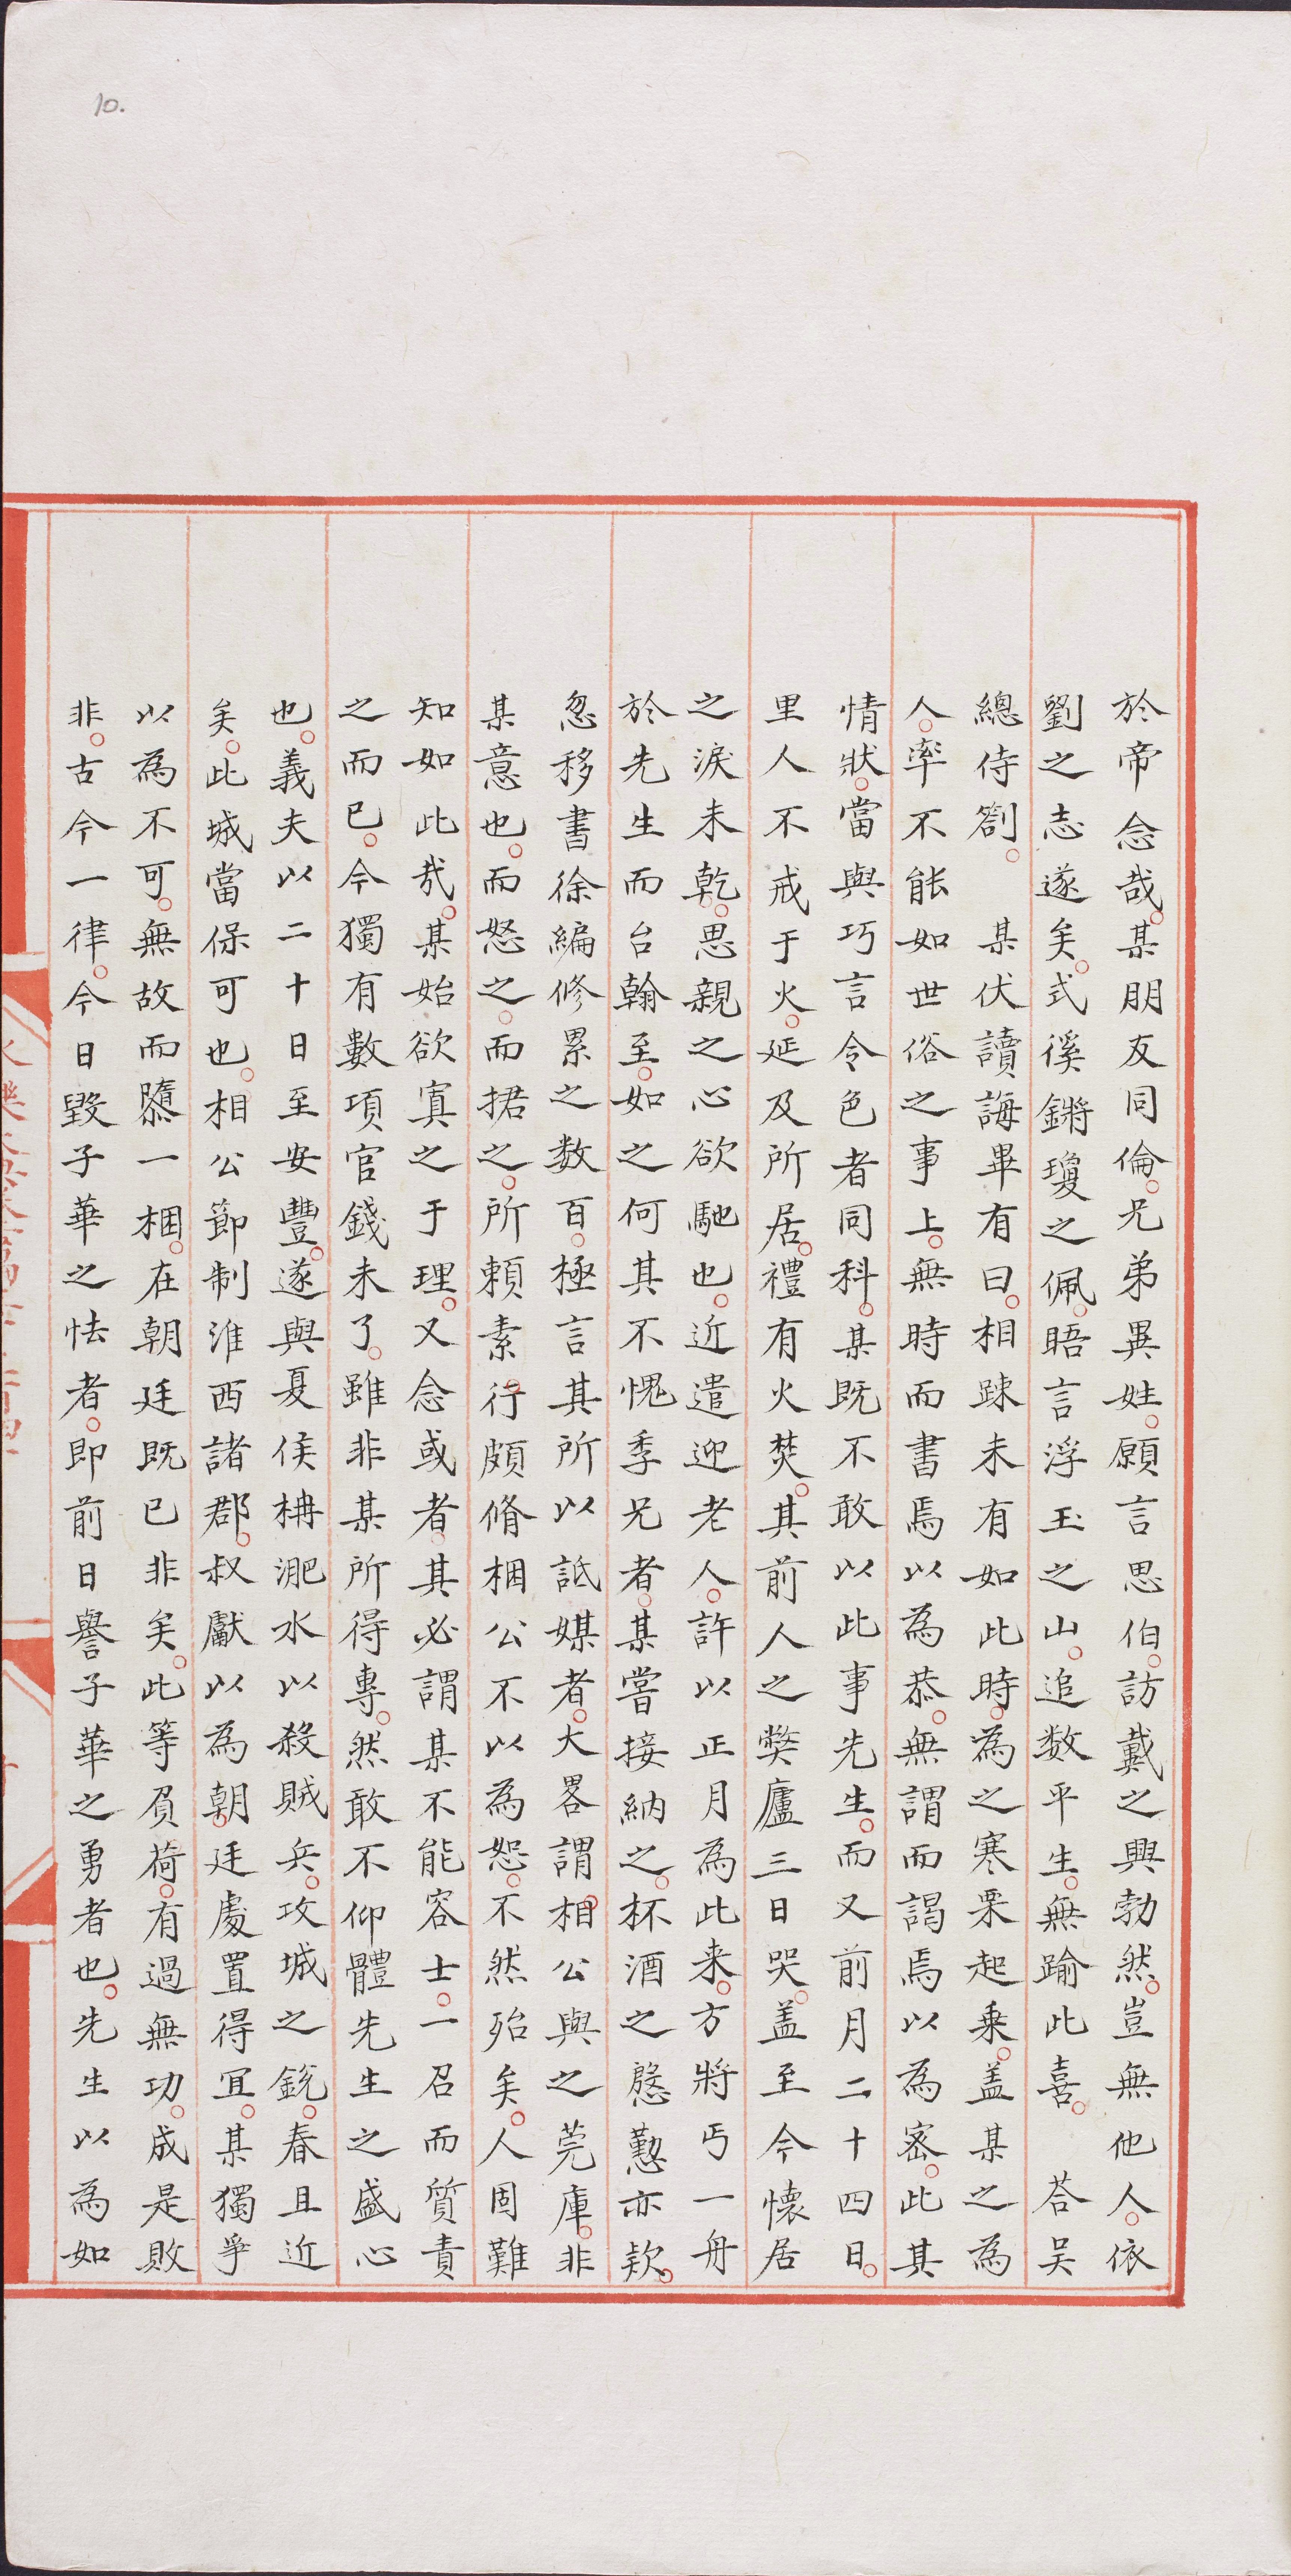 10.
於帝念哉。某朋友同倫。兄弟異姓。願言思伯。訪戴之興勃然。豈無他人。依
劉之志遂矣。式徯鏘瓊之佩。晤言浮玉之山。追数平生。無踰此喜。　荅吴
總侍劄。　某伏讀誨畢有曰。相踈未有如此時。為之寒栗起乗。盖某之為
人。率不能如世俗之事上。無時而書焉以為恭。無謂而謁焉以為密。此其
情狀。當與巧言令色者同科。某既不敢以此事先生。而又前月二十四日。
里人不戒于火。延及所居。禮有火焚。其前人之弊廬三日哭。盖至今懷居
之淚未乾。思親之心欲馳也。近遣迎老人。許以正月為此来。方將丐一舟
於先生而台翰至。如之何其不愧季兄者。某嘗接納之。杯酒之慇懃亦欵。
忽移書徐編修累之数百。極言其所以詆媒者。大畧謂相公與之莞庫。非
某意也。而怒之。而捃之。所頼素行頗脩梱公不以為恕。不然殆矣。人固難
知如此哉。某始欲寘之于理。又念或者其必謂某不能容士。一召而質責
之而已。今獨有數項官錢未了。雖非某所得專。然敢不仰體先生之盛心
也。義夫以二十日至安豐。遂與夏侯枏淝水以殺賊兵。攻城之銳。春且近
矣。此城當保可也。相公節制淮西諸郡。叔獻以為朝廷處置得宜。某獨爭
以為不可。無故而隳一梱。在朝廷既已非矣。此等負荷。有過無功。成是敗
非。古今一律。今日毀子華之怯者。即前日譽子華之勇者也。先生以為如